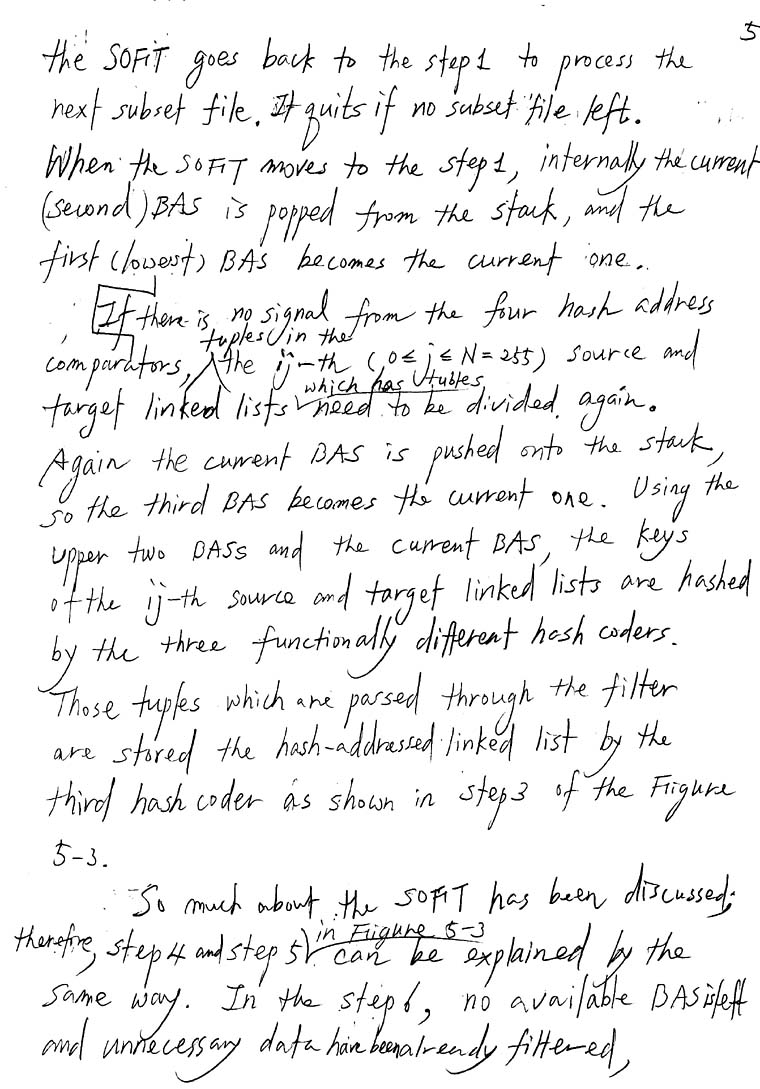 5
the SOFIT goes back to the step1 to process the
next subset file. It quits if no subset file left.
When the SOFIT moves to the step1, internally the current
(second) BAS is popped from the stack, and the
first (lowest) BAS becomes the current one.
If there is no signal from the four hash address
tuples in the
comparators, the ij-th (0≤j≤N=255) source and
which has tubles
target linked lists need to be divided again.
Again the current BAS is pushed onto the stack,
so the third BAS becomes the current one. Using the
upper two BASs and the current BAS, the keys
of the ij-th source and target linked lists are hashed
by the three functionally different hash coders.
Those tuples which are passed through the filter
are stored the hash-addressed linked list by the
third hash coder as shown in step3 of the Fiigure
5-3.
So much about the SOFIT has been discussed;
in Fiigure 5-3
therefore, step4 and step5 can be explained by the
same way. In the step6, no available BAS is left
and unnecessary data have been already filtered,